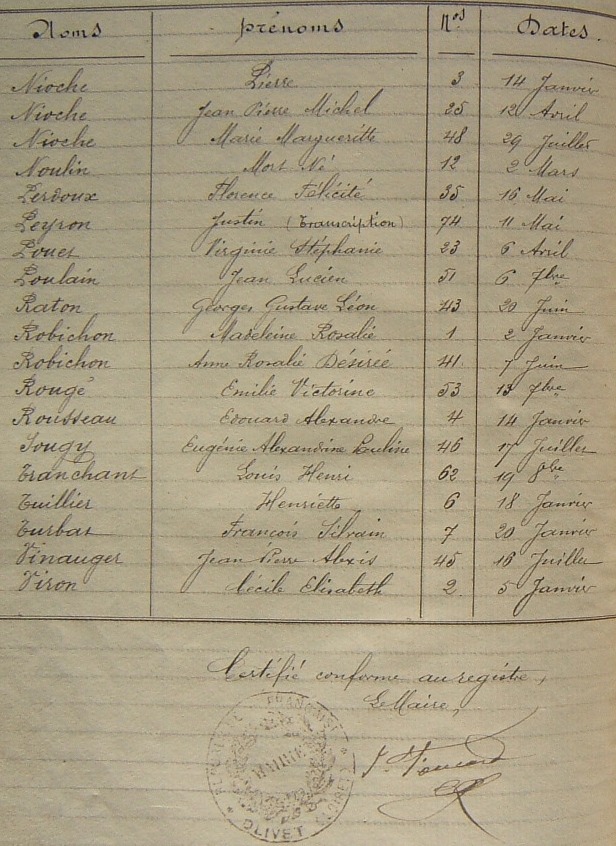 Noms Prénoms Nos Dates.
Nioche Pierre 3 14 Janvier
Nioche Jean Pierre Michel 25 12 Avril
Nioche Marie Margueritte 48 29 Juillet
Noulin Mort Né 12 2 Mars
Perdoux Florence Félicité 35 16 Mai
Peyron Justin (Transcription) 74 11 Mai
Pouet Virginie Stéphanie 23 6 Avril
Poulain Jean Lucien 51 6 7bre
Raton Georges Gustave Léon 43 20 Juin
Robichon Madeleine Rosalie 1 2 Janvier
Robichon Anne Rosalie Désirée 41 7 Juin
Rougé Emilie Victorine 53 13 7bre
Rousseau Edouard Alexandre 4 14 Janvier
Sougy Eugénie Alexandrine Pauline 46 17 Juillet
Tranchant Louis Henri 62 19 8bre
Tuillier Henriette 6 18 Janvier
Turbat François Silvain 7 20 Janvier
Vinauger Jean Pierre Alexis 45 16 Juillet
Viron Cécile Elisabeth 2 5 Janvier
Certifié conforme au registre,
Le Maire,
RÉPUBLIQUE FRANÇAISE
MAIRIE
OLIVET (LOIRET)